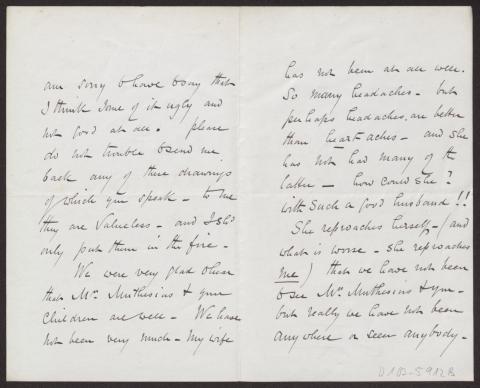 am sorry to have to say that
I think some of it ugly and
not good at all. please
do not trouble to send me
back any of those drawings
of which you speak – to me
they are valueless – and I shd
only put them in the fire –
We were very glad to hear
that Mrs. Muthesius & your
children are well – We have
not been very much – My wife
has not been at all well.
So many headaches – but
perhaps headaches, are better
than heart aches – and she
has not had many of the
latter – how could she?
with such a good husband!!
She reproaches herself – (and
what is worse – she reproaches
me) that we have not been
to see Mrs. Muthesius & you –
but really we have not been
anywhere or seen anybody –
D 102-5912B